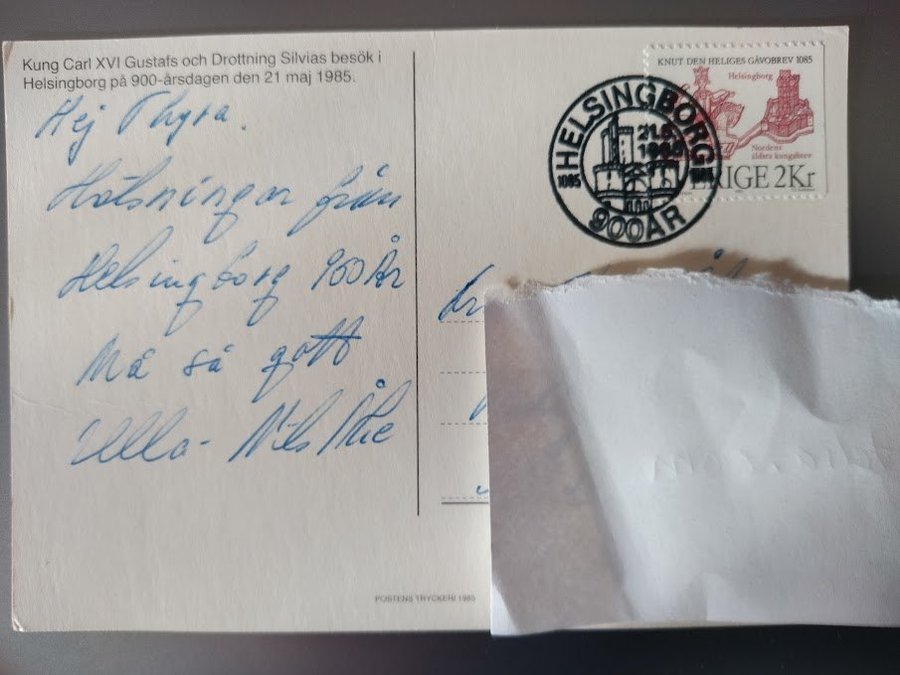 Kung Carl XVI Gustafs och Drottning Silvias besök i
Helsingborg på 900-årsdagen den 21 maj 1985.
Hej Thyra.
Hälsningar från
Helsingborg 900 År
Må så gott
Ulla - Nils Åke
KNUT DEN HELIGES GÅVOBREV 1085
Helsingborg
Nordens
äldsta kungabrev
SVERIGE 2Kr
HELSINGBORG
21.5
1985
1085 1985
900 ÅR
POSTENS TRYCKERI 1985